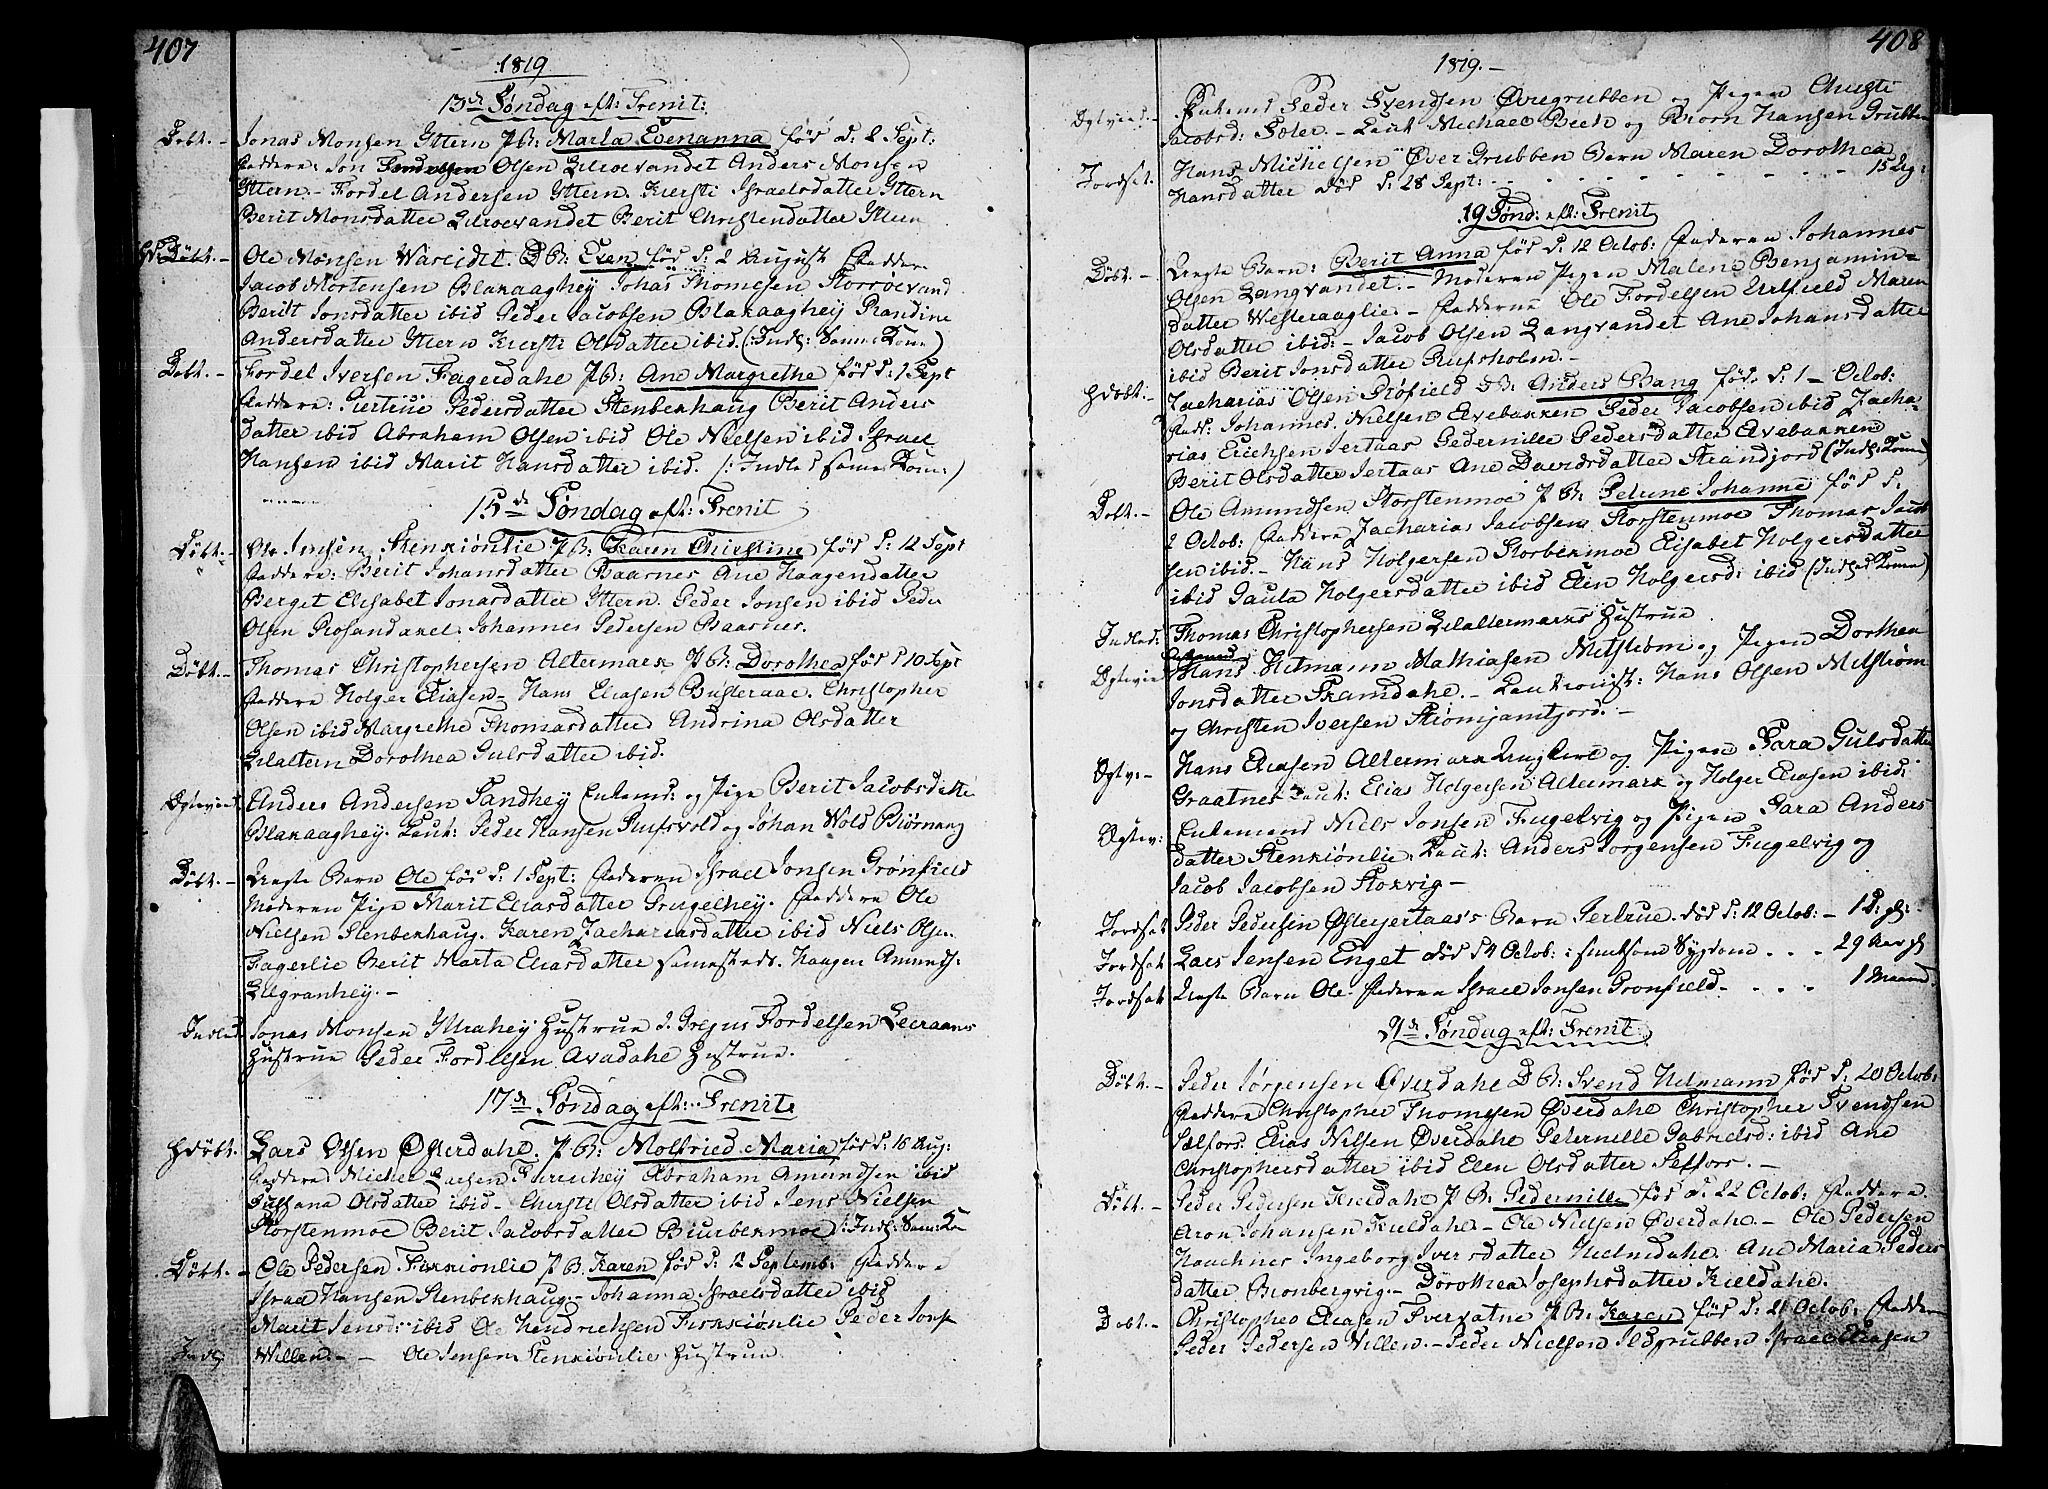 407
1819
13de Søndag eft: Trenit:
Døbt. Jonas Monsen Ittern P B: Marta Evenanna før d. 2 Sept:
Faddere: Jon Olsen Lilroevandet Anders Monsen
Ittern Fordel Andersen Ittern. Kiersti Israelsdatter Ittern
Berit Monsdatter Lilroevandet Berit Christendatter Ittern
Hd: Døbt. Ole Monsen Wareidet. D B: Elen før d: 2 August Faddere
Jacob Mortensen Blakaaghey Johas Thomesen Storrøevand
Berit Jonsdatter ibid Peder Jacobsen Blakaaghey Randine
Andersdatter Ittern Kiersti Olsdatter ibid. (: Indl: Samme Kone)
Døbt. Fordel Iversen Fagerdahl P B: Ane Margrethe før d: 1 Sept
Faddere: Giertrue Pedersdatter Stenbekhaug Berit Anders
datter ibid Abraham Olsen ibid Ole Nielsen ibid. Israel
Hansen ibid Marit Hansdatter ibid. (: Indled samme Kone:)
15de Søndag eft: Trenit
Døbt. Ole Jensen Stenkiönlie P B: Karen Christine før d: 12 Sept
Faddere: Berit Johansdatter Baasnes Ane Haagendatter
Berget Elisabet Jonasdatter Ittern. Peder Jonsen ibid Peder
Olsen Rosandaxel Johannes Pedersen Baasnes.
Døbt. Thomas Christophersen Altermark P B: Dorothea før d 10 Sept
Faddere Holger Eliasen Hans Eliasen Busteraae. Christopher
Olsen ibid Margrethe Thomasdatter Andrina Olsdatter
Lilaltern Dorothea Gulsdatter ibid.
Ægteviet. Anders Andersen Sandhey Enkemd: og Pige Berit Jacobsdatter
Blakaaghey. Caut: Peder Hansen Rufsvold og Johan Wold Biørnang
Døbt. Uægte Barn Ole før d: 1 Sept: Faderen Israel Jonsen Grönfield
Moderen Pige Marit Eliasdatter Grugelhey. Faddere Ole
Nielsen Stenbekhaug. Karen Zachariasdatter ibid Niels Olsen
Fagerlie Berit Marta Eliasdatter samesteds. Haagen Amunds:
Lilgranhey.
Indled Jonas Monsen Yttrahey Hustrue d. Gregus Fordelsen Leeraanes
Hustrue Peder Fordelsen Avadahl Hustrue.
17de Søndag eft: Trenit:
Hdöbt. Lars Olsen Øfterdahl. P B: Molfried Maria før d: 16 Aug:
Faddere Michel Larsen Furuehey Abraham Amundsen ibid
Sussana Olsdatter ibid Chersti Olsdatter ibid Jens Nielsen
Storstenmoe Berit Jacobsdatter Biurbekmoe (: Indl: Sam: Ko
Døbt. Ole Pedersen Finkiönlie P B. Karen før d: 12 Septemb: Faddere
Israel Hansen Stenbekhaug. Johanna Israelsdatter ibid
Marit Jensd: ibid Ole Hendrichsen Finkiönlie Peder Jons
Indl. Willen. Ole Jensen Stenkiönlie Hustrue
408
1819.
Ægteviet. Enkemd Peder Svendsen Øvregrubben og Pigen Augti
Jacobsd: Sæter. Caut Michael Beck og Biørn Hansen Grubben
Jordfæt. Hans Michelsen Øver Grubben Barn Maren Dorothea
Hansdatter død d: 28 Sept: 15 Dg:
19 Sønd: eft: Trenit
Døbt. Uægte Barn: Berit Anna før d: 12 Octob: Faderen Johannes
Olsen Langvandet. Moderen Pigen Malene Benjamin=
datter Westeraaglie. Fadderne Ole Fordelsen Urlfield Maren
Olsdatter ibid: Jacob Olsen Langvandet Ane Johansdatter
ibid Berit Jonsdatter Rufsholm.
Hdöbt. Zacharias Olsen Röfield D B: Anders Bang før d: 1 Octob:
Fadd: Johannes Nielsen Elvebakken Peder Jacobsen ibid Zacha=
rias Erichsen Jertaas Pedernille Pedersdatter Elvebakken
Berit Olsdatter Jertaas Ane Davidsdatter Strandjord (Indl: Konen)
Døbt. Ole Amundsen Storstenmoe P B: Petrine Johanne før d.
2 Octob: Faddere Zacharias Jacobsen Storstenmoe Thomas Jacob
sen ibid. Hans Holgersen Storbekmoe Elisabet Holgersdatter
ibid Paula Holgersdatter ibid Elen Holgersd: ibid (Indled Konen)
Indled: Thomas Christophersen Lilaltermarks Hustrue
Ægteviet Enkemd Hans Hitmann Mathiasen Nilström og Pigen Dorthea
Jonsdatter Skamdahl. Cautionist: Hans Olsen Nilström
og Christen Iversen Strömjamtjord.
Ægtv: Hans Eliasen Altermark Ungkarl og Pigen Sara Gulsdatter
Graatnes Caut: Elias Holgersen Altermark og Holger Eliasen ibid:
Ægtev: Enkemand Niels Jonsen Fugelvig og Pigen Sara Anders
datter Stenkiönlie. Caut: Anders Jörgensen Fugelvig og
Jacob Jacobsen Stokvig
Jordfæt Peder Pedersen Østeyertaas's Barn Gertrue død d: 12 Octob: 1 D: gl:
Jordfæt Lars Jensen Enget død d 4 Octob: i smitsom Sygdom 29 Aar gl
Jordfæt Uægte Barn Ole Faderen Israel Jonsen Gronfield 1 Maaned
21de Søndag eft: Trenit:
Døbt. Peder Jørgensen Øverdahl D B: Svend Hitmann før d: 20 Octob:
Faddere Christopher Thomesen Øverdahl Christopher Svendsen
Selfors. Elias Nilsen Øverdahl Peternelle Gabrielsd: ibid Ane
Christophersdatter ibid Elen Olsdatter Selfors.
Døbt. Peder Pedersen Kieldahl P B: Pedernille før d. 22 Octob: Faddere.
Aron Johansen Kieldahl Ole Nielsen Øverdahl. Ole Pedersen
Haachnes Ingeborg Iversdatter Hielmdahl. Ane Maria Peders
datter Bronbergvig. Dorothea Josephsdatter Kieldahl.
Døbt. Christopher Eliasen Tverxatne P B: Karen før d: 21 Octob: Faddere
Peder Pedersen Villen. Peder Nielsen Ildgrubben Israel Eliasen